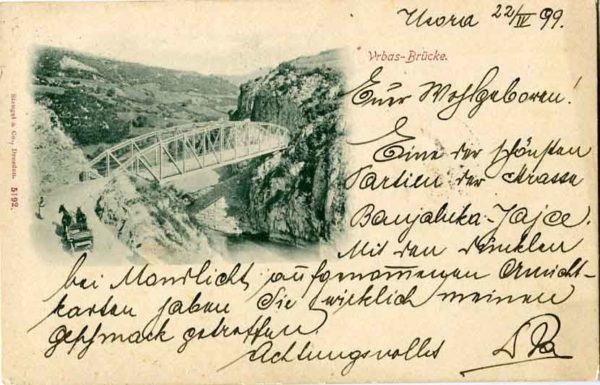 Usora 22/IV 99.
Vrbas-Brücke.
Euer Wohlgeboren!
Eine der schönsten
Partien der Strasse
Banjaluka-Jajce.
Mit den dunklen
bei Mondlicht aufgenommenen Ansicht-
karten haben Sie wirklich meinen
Geschmack getroffen.
Achtungsvollst
Stengel & Co., Dresden. 5192.